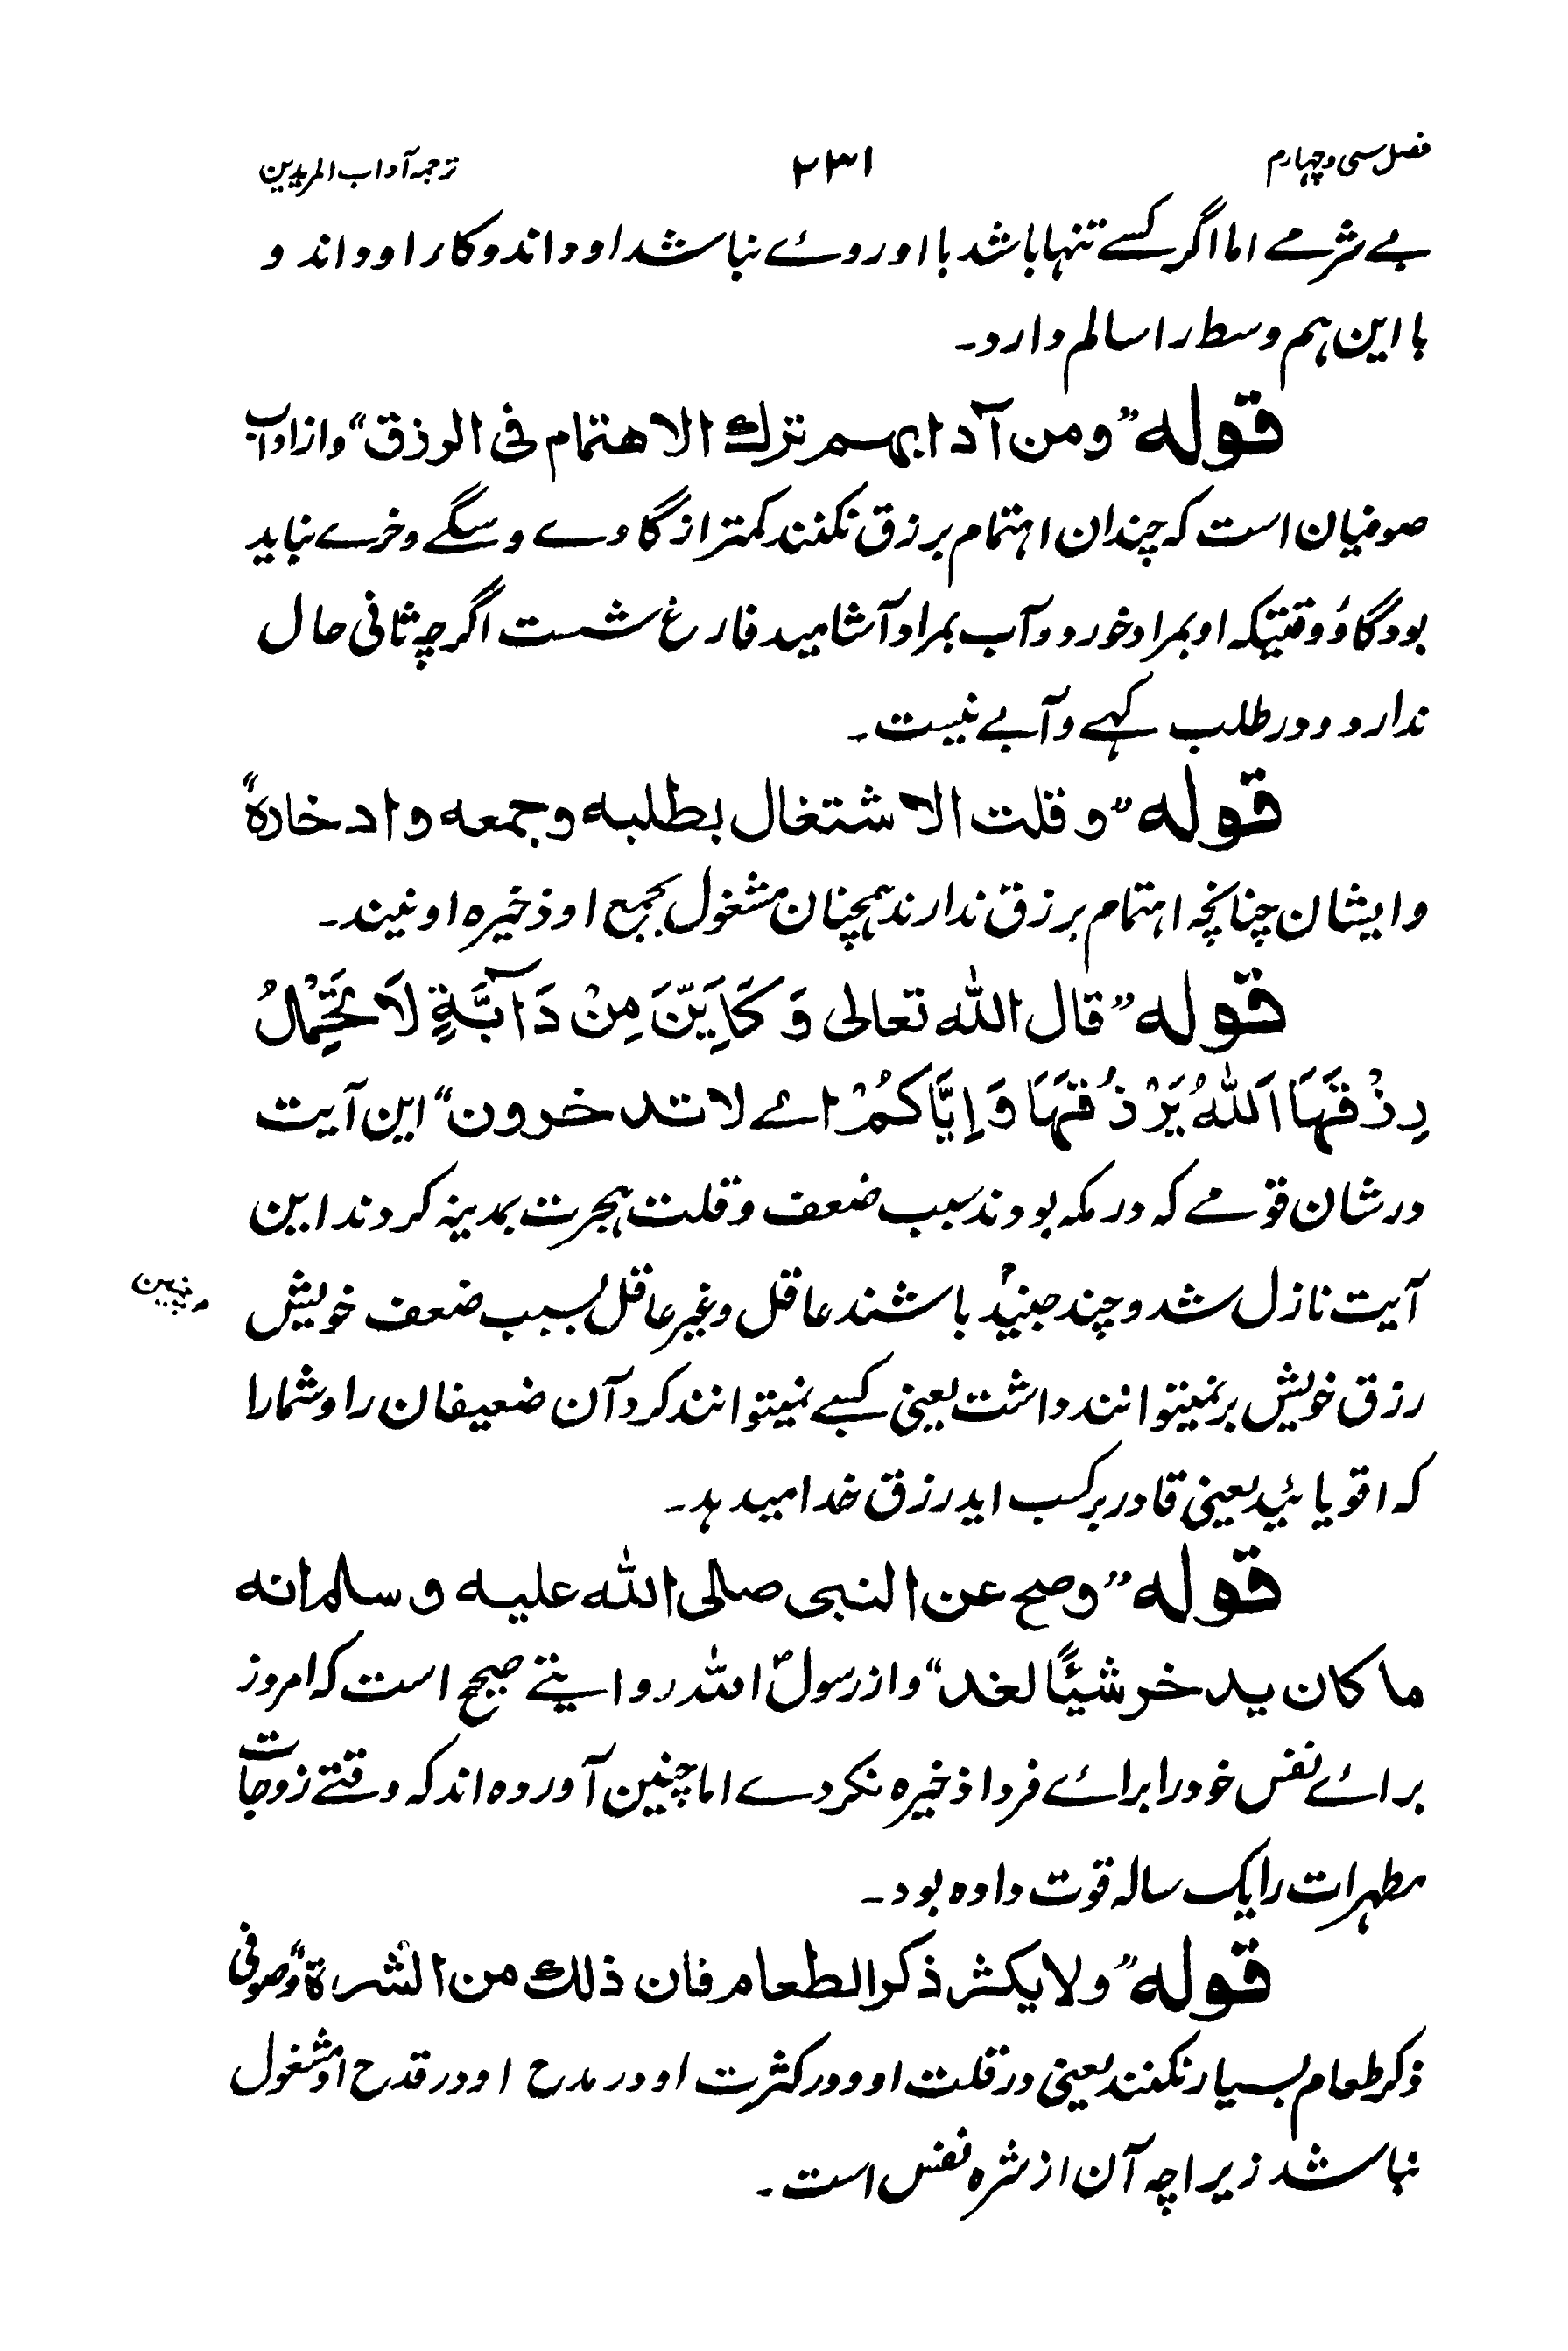 فصل سی و چہارم ۲۳۱ ترجمہ آداب المریدین
بے شرمے اما اگر کسے تنہا باشد با او روئے نباشد او داند و کار او داند و
با این ہم وسط را سالم دارد۔
قوله ”ومن آدابهم ترك الاهتمام فی الرزق“ و از آداب
صوفیان است کہ چندان اہتمام برزق نکنند کمتر از گاوے و سگے و خرے نباید
بود گاؤ وقتیکہ او بمراد خورد و آب بمراد آشامید فارغ شست اگرچہ ثانی حال
ندارد و در طلب کہے و آبے نیست۔
قوله ”و قلت الاشتغال بطلبه وجمعه وادخاره“
و ایشان چنانچہ اہتمام برزق ندارند ہمچنان مشغول بجمع او ذخیرہ او نیند۔
قوله ”قال الله تعالی وَكَاَيِّنَ مِنْ دَآبَّةٍ لَا تَحْمِلُ
رِزْقَهَا اَللهُ يَرْزُقُهَا وَإِيَّاكُمْ اے لا تدخرون“ این آیت
در شان قومے کہ در مکہ بودند سبب ضعف و قلت ہجرت بمدینہ کردند این
آیت نازل شد و چند جنبیدؕ باشند عاقل و غیر عاقل بسبب ضعف خویش
رزق خویش بر نمیتوانند داشت یعنی کسبے نمیتوانند کرد آن ضعیفان را و شمارا
کہ اقویائید یعنی قادر بر کسب اید رزق خدا میدہد۔
قوله ”وصح عن النبی صلی الله علیه وسلم انه
ما کان یدخر شیئًا لغد“ و از رسولؐ اللہ روایتے صحیح است کہ امروز
برائے نفس خود را برائے فردا ذخیرہ نکردے اما چنین آوردہ اند کہ وقتے زوجات
مطہرات را یک سالہ قوت دادہ بود۔
قوله ”ولا یکثر ذکر الطعام فان ذلك من الشرة“ و صوفی
ذکر طعام بسیار نکنند یعنی در قلت او و در کثرت او در مدح او در قدح او مشغول
نباشد زیراچہ آن از شرہ نفس است۔